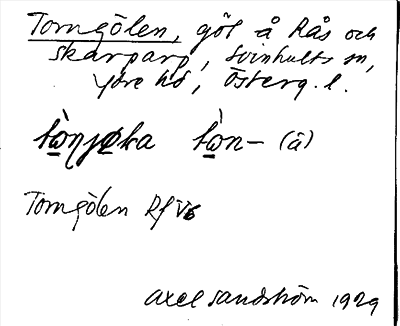 Torngölen, göl å Rås och
Skarparp, Svinhults sn,
Ydre hd, Österg. l.
tòn- (å)
Torngölen Rf V6
Axel Sandström 1929